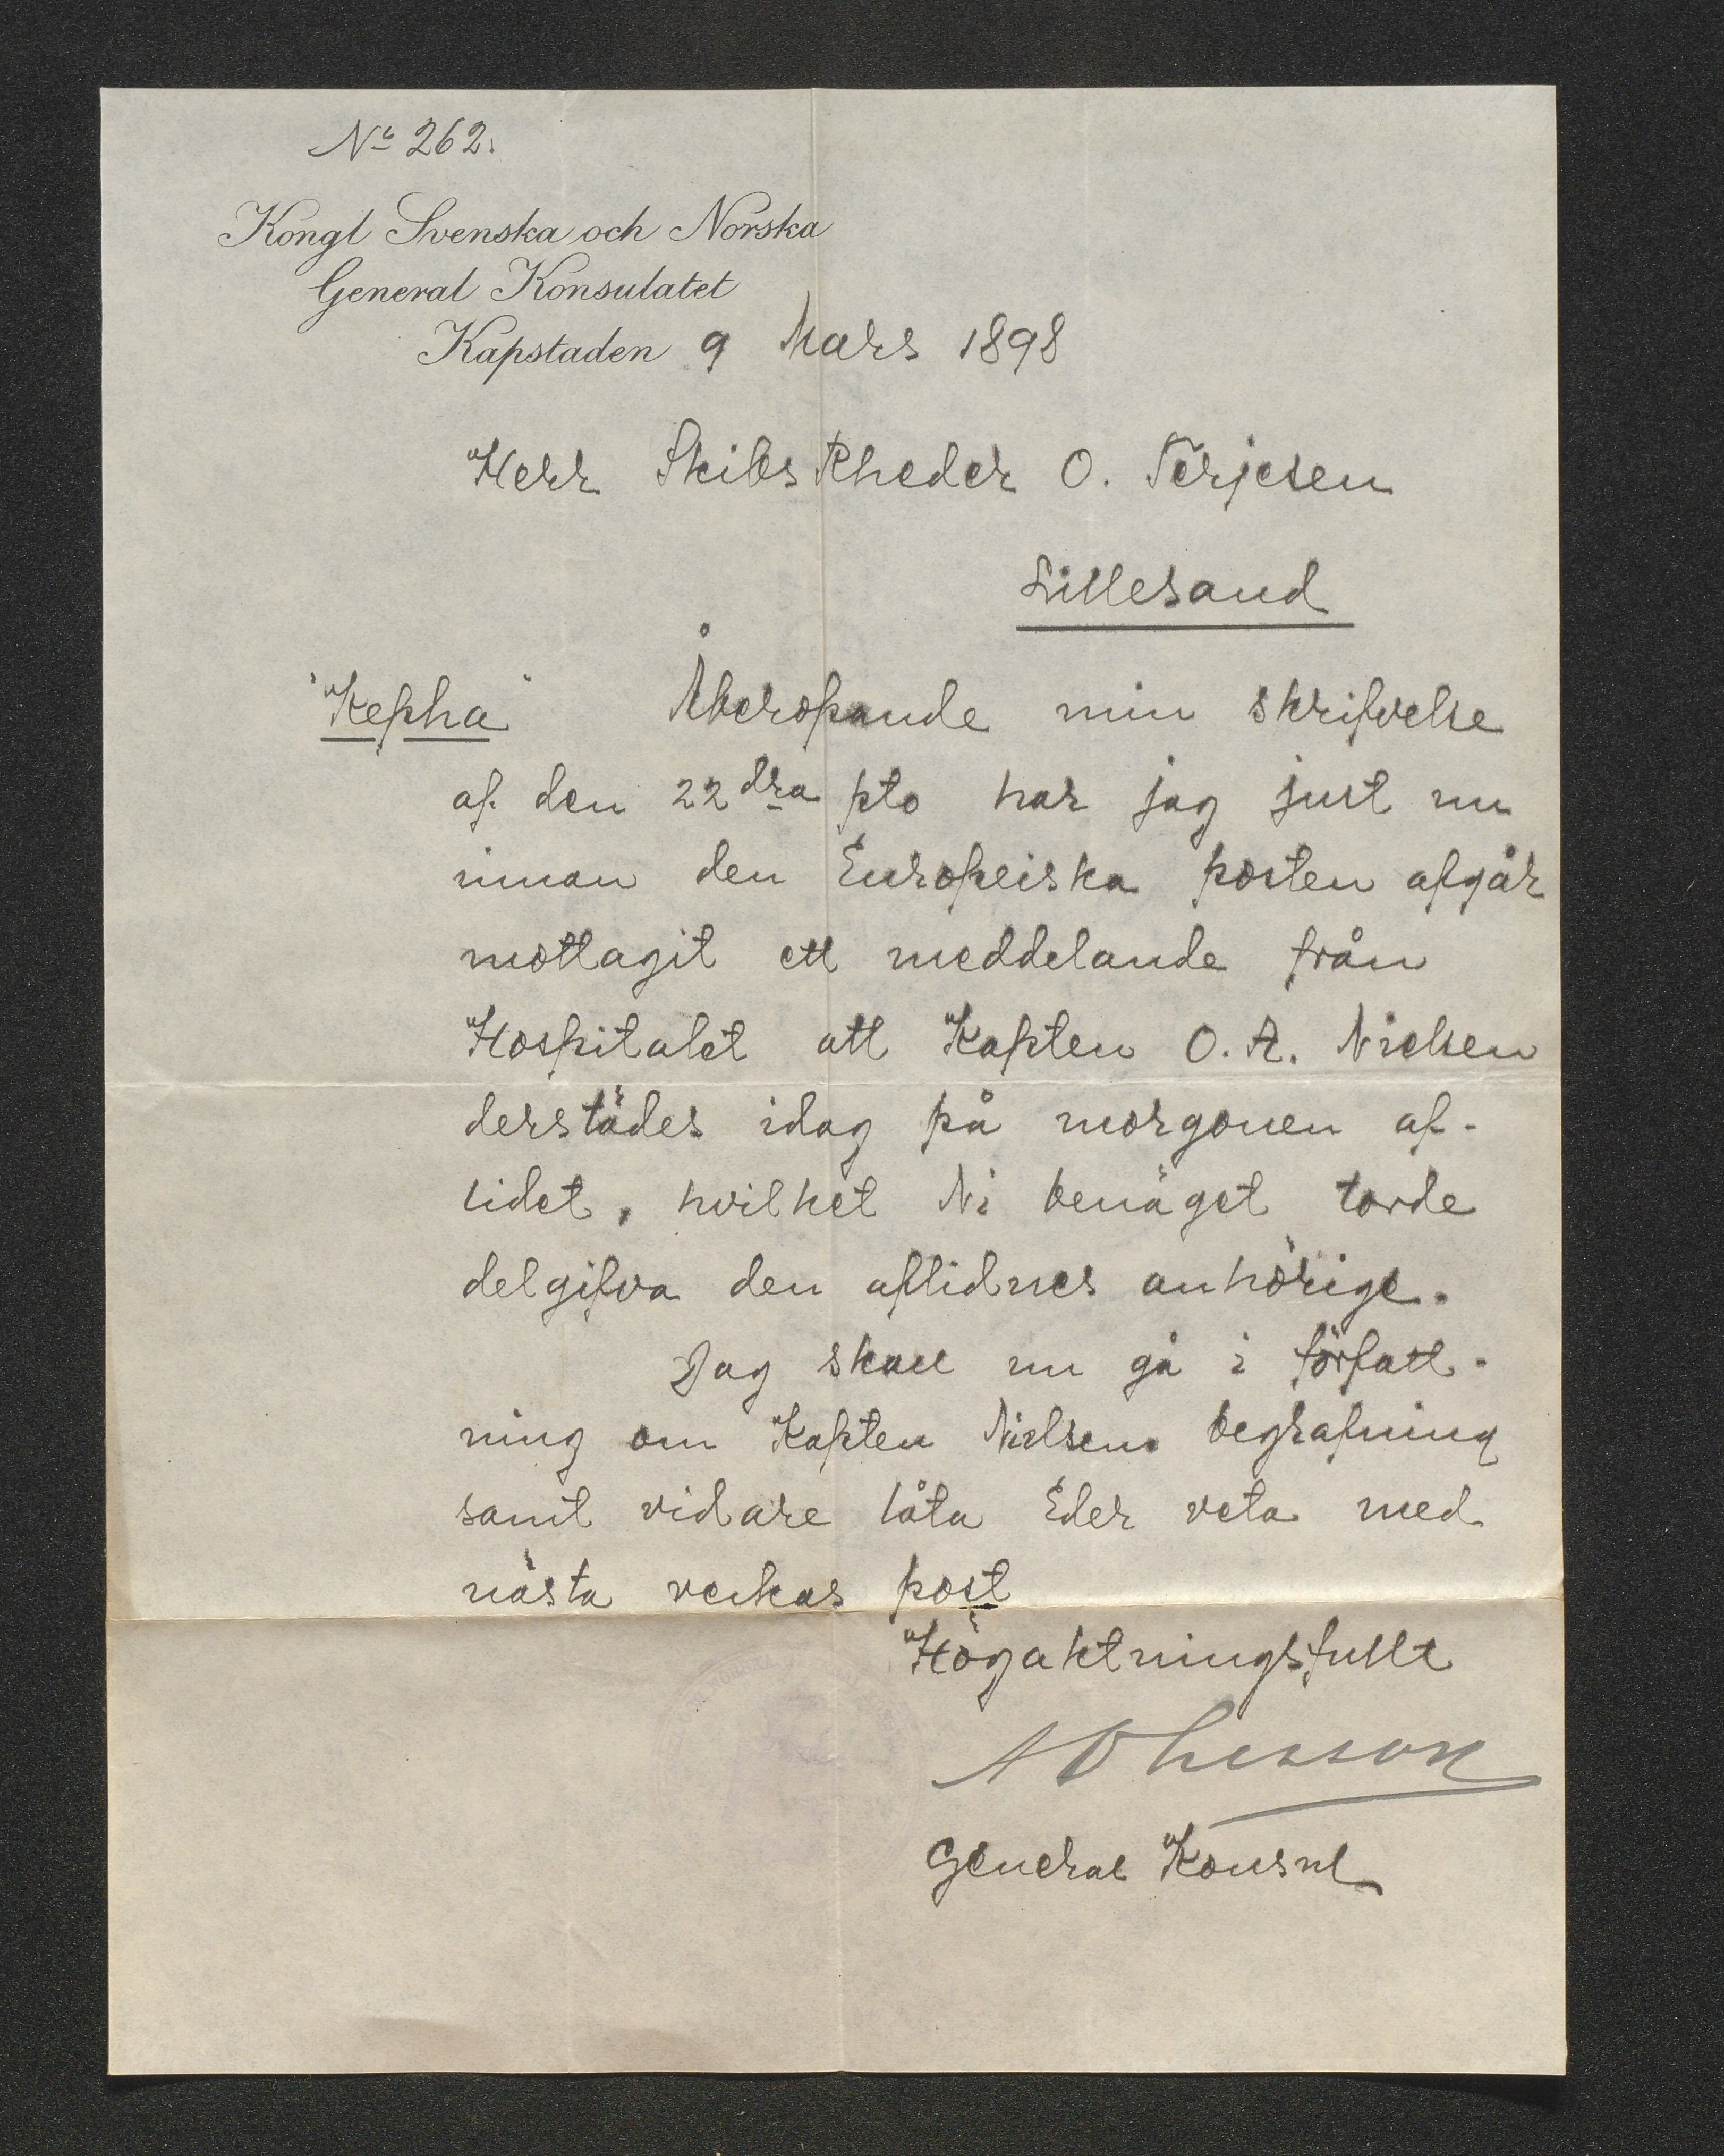 No 262.
Kongl Svenska och Norska
General Konsulatet
Kapstaden 9 Mars 1898
Herr Skibs Rheder O. Terjesen
Lillesand
"Kepha" Åberopande min skrifvelse
af den 22dra pto har jag just nu
innan den Europeiska posten afgår
mottagit ett meddelande från
Hospitalet att Kapten O. A. Nielsen
derstädes idag på morgonen af-
lidet, hvilket Ni benäget torde
delgifva den aflidnes anhörige.
Jag skall nu gå i författ-
ning om Kapten Nielsens begrafning
samt vidare låta Eder veta med
nästa veckas post
Högaktningsfullt
A Ohlsson
General Konsul